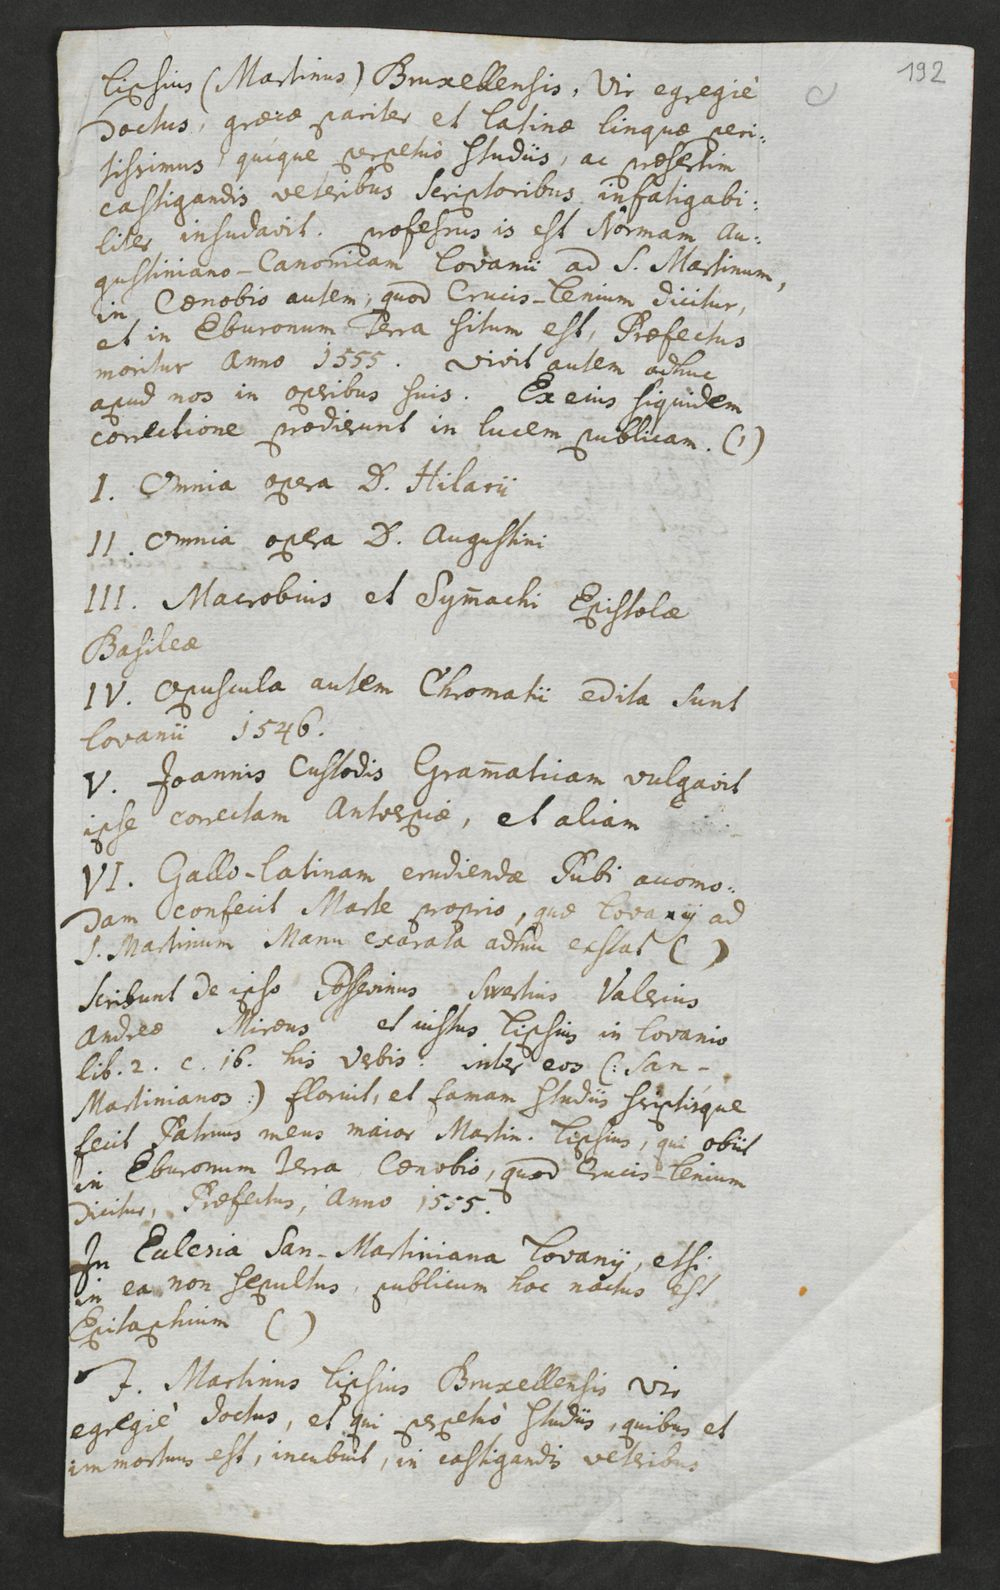 192
Lipsius (Martinus) Bruxellensis, Vir egregiè
doctus, græcæ pariter et latinæ linguæ peri:
tissimus, quique perpetuò studiis, ac præsertim
castigandis veteribus scriptoribus infatigabi:
liter insudavit. professus is est Normam Au:
gustiniano-Canonicam Lovanii ad S. Martinum,
in Cœnobio autem, quod Crucis-Lenium dicitur,
et in Eburonum Terra situm est, Præfectus
moritur Anno 1555. vivit autem adhuc
apud nos in operibus suis. Ex eius siquidem
correctione prodierunt in lucem publicam. (1)
I. Omnia opera D. Hilarii
II. Omnia opera D. Augustini
III. Macrobius et Sym̄achi Epistolæ
Basileæ
IV. Opuscula autem Chromatii edita sunt
Lovanii 1546.
V. Joannis Custodis Gram̄aticam vulgavit
ipse correctam Antverpiæ, et aliam
VI. Gallo-Latinam erudiendæ Pubi accomo:
dam confecit Marte proprio, quæ Lovanij ad
S. Martinum Manu exarata adhuc exstat ( )
Scribunt de ipso Possevinus Swertius Valerius
Andreæ Miræus et iustus Lipsius in Lovanio
lib. 2. c. 16. his verbis: inter eos (: San-
Martinianos :) floruit, et famam studiis scriptisque
fecit Patruus meus maior Martin. Lipsius, qui obiit
in Eburonum Terra Cœnobio, quod Crucis-Lenium
dicitur, Præfectus, Anno 1555.
In Ecclesia San-Martiniana Lovanij, etsi
in ea non sepultus, publicum hoc nactus est
Epitaphium ( )
F. Martinus Lipsius Bruxellensis vir
egregiè doctus, et qui perpetuò studiis, quibus et
immortuus est, incubuit, in castigandis veteribus